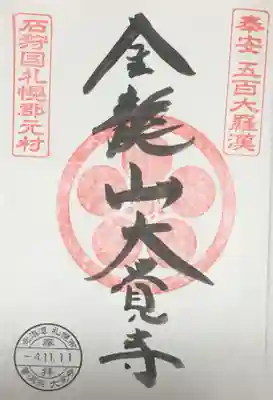 奉安 五百大羅漢
金龍山大覚寺
石狩国札幌郡元村
北海道 札幌市
参
-4.11.11
拝
曹洞宗 大覚寺